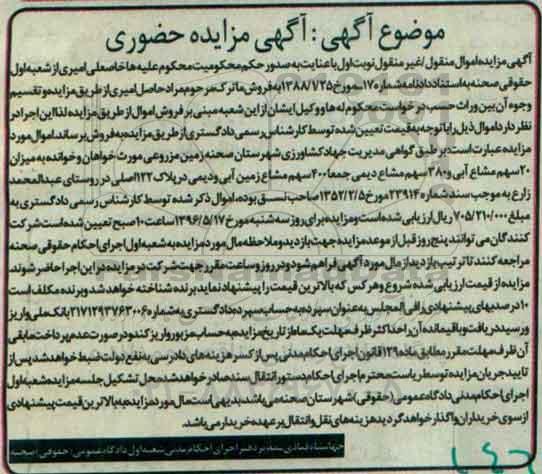 موضوع آگهی : آگهی مزایده حضوری
آگهی مزایده اموال منقول /غیر منقول نوبت اول با عنایت به صدور حکم محکومیت محکوم علیه ها خاصعلی امیری از شعبه اول
حقوقی صحنه به استناد دادنامه شماره ۱۷-مورخ ۱۳۸۸/۷/۲۵ به فروش ماترک مرحوم مراد حاصل امیری از طریق مزایده و تقسیم
وجوه آن بین وراث حسب درخواست محکوم له ها و وکیل ایشان از این شعبه مبنی بر فروش اموال از طریق مزایده لذا این اجرا در
نظر دارد اموال ذیل را با توجه به قیمت تعیین شده توسط کارشناس رسمی دادگستری از طریق مزایده به فروش برساند. اموال مورد
مزایده عبارت است: بر طبق گواهی مدیریت جهاد کشاورزی شهرستان صحنه زمین مزروعی مورث خواهان و خوانده به میزان
۲۰ سهم مشاع آبی و ۳۸۰ سهم مشاع دیمی جمعا ۴۰۰ سهم مشاع زمین آبی و دیمی در پلاک ۱۲۲ اصلی در روستای عبدالمحمد
زارع به موجب سند شماره ۲۳۹۱۴ مورخ ۱۳۵۲/۲/۵ صاحب نسق بوده، اموال ذکر شده توسط کارشناس رسمی دادگستری به
مبلغ ۷۰۵/۲۱۰/۰۰۰ ریال ارزیابی شده است و مزایده برای روز سه شنبه مورخ ۱۳۹۶/۵/۱۷ ساعت ۱۰ صبح تعیین شده است شرکت
کنندگان می توانند پنج روز قبل از موعد مزایده جهت بازدید و ملاحظه مال مورد مزایده به شعبه اول اجرای احکام حقوقی صحنه
مراجعه کنند تا ترتیب بازدید از مال مورد آگهی فراهم شود و در روز و ساعت مقرر جهت شرکت در مزایده در این اجرا حاضر شوند.
مزایده از قیمت ارزیابی شده شروع و هر کس که بالاترین قیمت را پیشنهاد نماید برنده شناخته خواهد شد و برنده مکلف است
۱۰ درصد بهای پیشنهادی را فی المجلس به عنوان سپرده به حساب سپرده دادگستری به شماره ۲۱۷۱۲۹۳۷۶۳۰۰۶ بانک ملی واریز
و رسید دریافت و باقیمانده آن را حداکثر ظرف مهلت یک ماه از تاریخ مزایده به حساب مزبور واریز کند و در صورت عدم پرداخت مابقی
آن ظرف مهلت مقرر مطابق ماده ۱۲۹ قانون اجرای احکام مدنی پس از کسر هزینه های دادرسی به نفع دولت ضبط خواهد شد پس از
تایید جریان مزایده توسط ریاست محترم اجرای احکام دستور انتقال سند صادر خواهد شد محل تشکیل جلسه مزایده شعبه اول
اجرای احکام مدنی دادگاه عمومی (حقوقی) شهرستان صحنه می باشد بدیهی است مال مورد مزایده به بالاترین قیمت پیشنهادی
از سوی خریداران واگذار خواهد گردید هزینه های نقل و انتقال بر عهده خریدار می باشد.
مدیر دفتر اجرای احکام مدنی شعبه اول دادگاه عمومی (حقوقی) صحنه